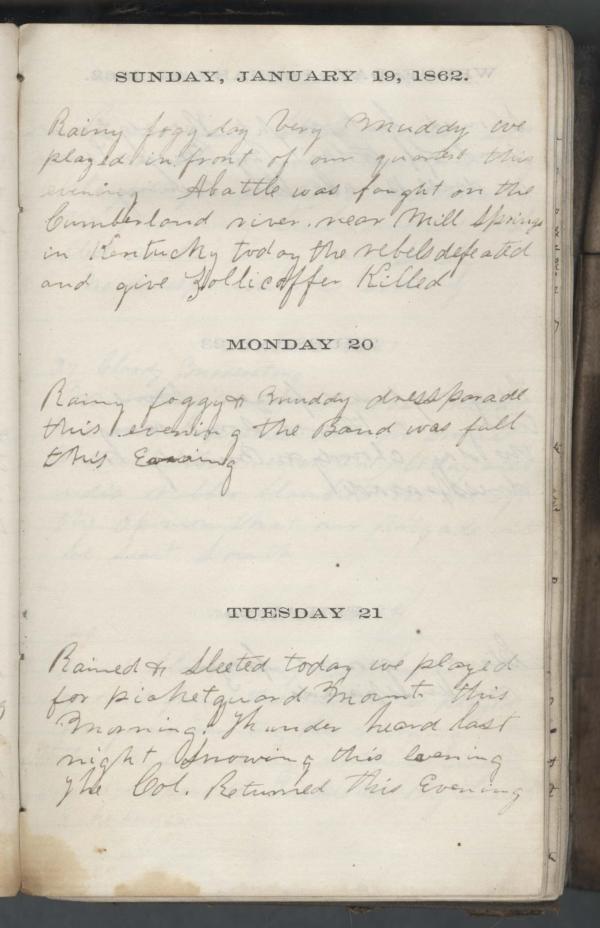 SUNDAY, JANUARY 19, 1862.
Rainy fogy day Very Muddy we
played in front of our quarters this
evening A battle was fought on the
Cumberland river near Mill Springs
in Kentucky today the rebels defeated
and give Zollicoffer Killed
MONDAY 20
Rainy foggy & Muddy dress parade
this evening the Band was full
this Evening
TUESDAY 21
Rained & Sleeted today we played
for picket guard Mount this
Morning. Thunder heard last
night Snowing this evening
The Col. Returned this Evening